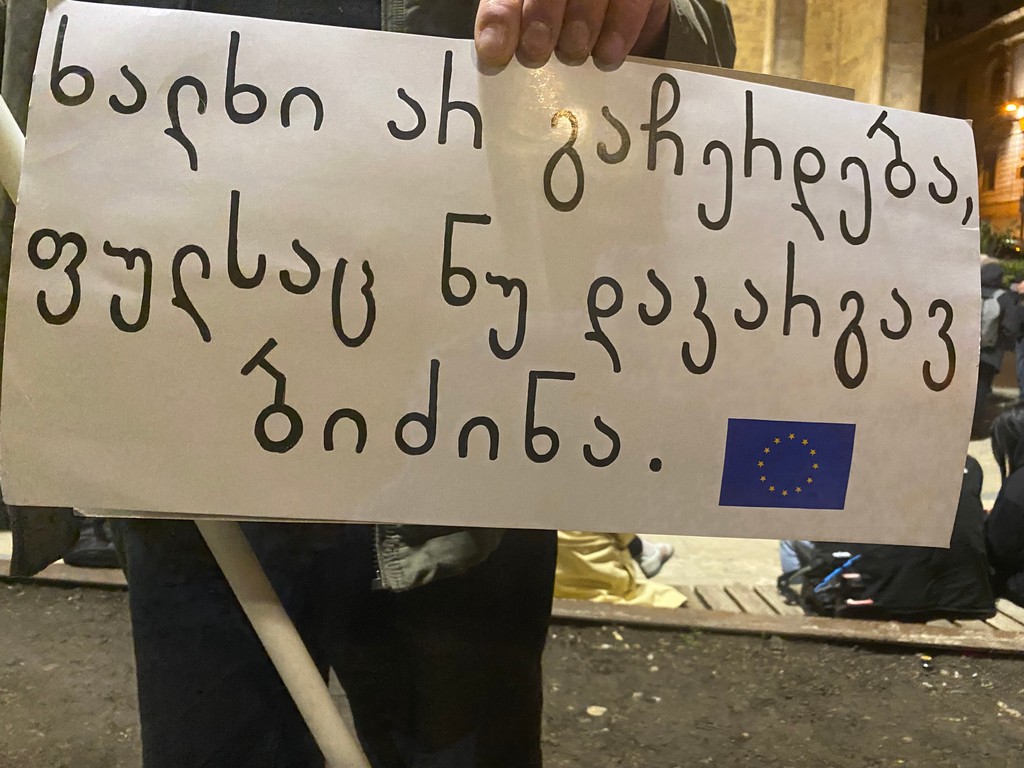 ხალხი არ გაჩერდება,
ფულსაც ნუ დაკარგავ
ბიძინა.